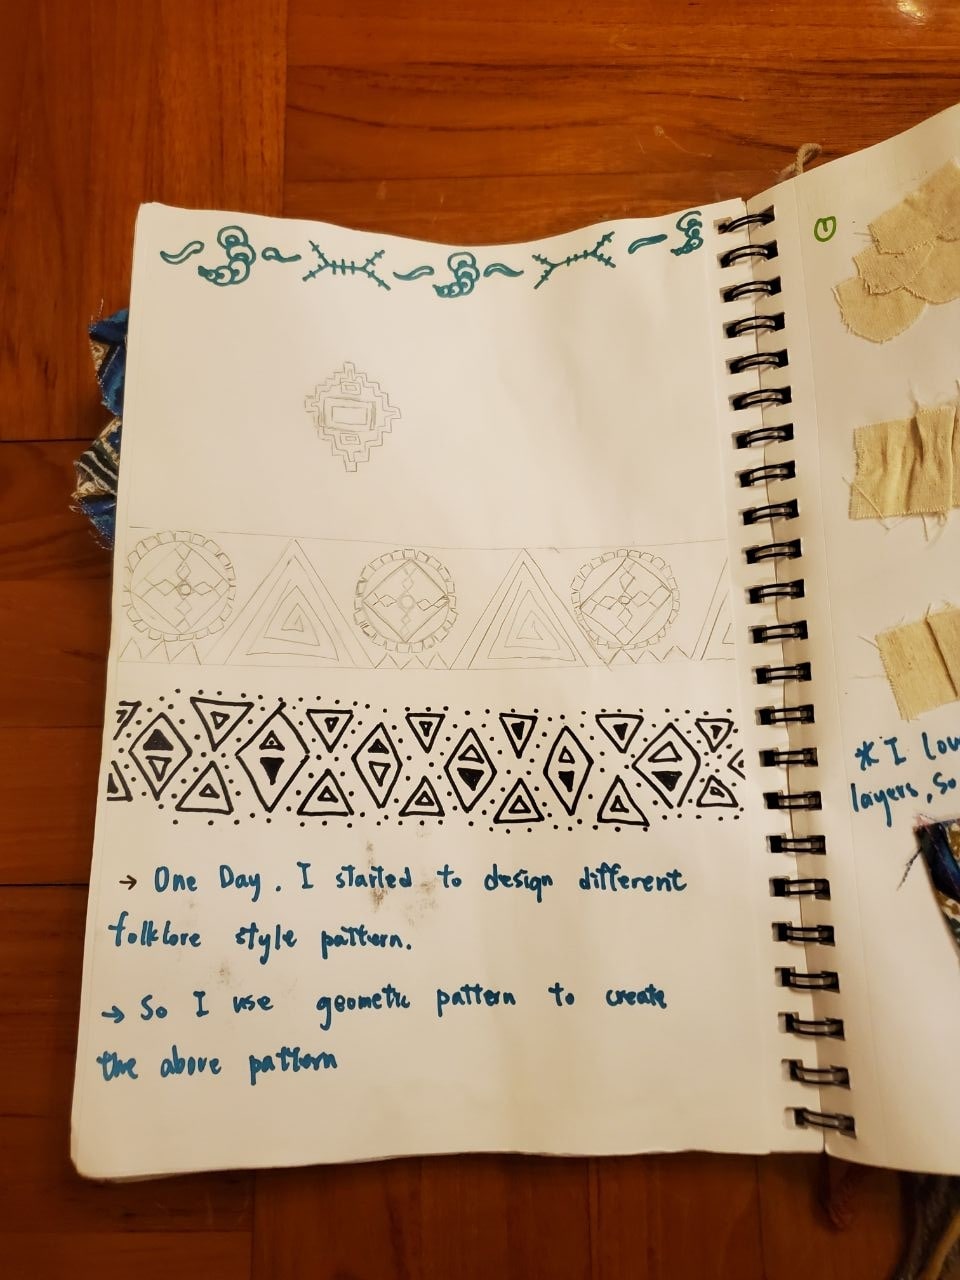 → One Day. I started to design different
folklore style pattern.
→ So I use geometic pattern to create
the above pattern
* I lov
layers, so